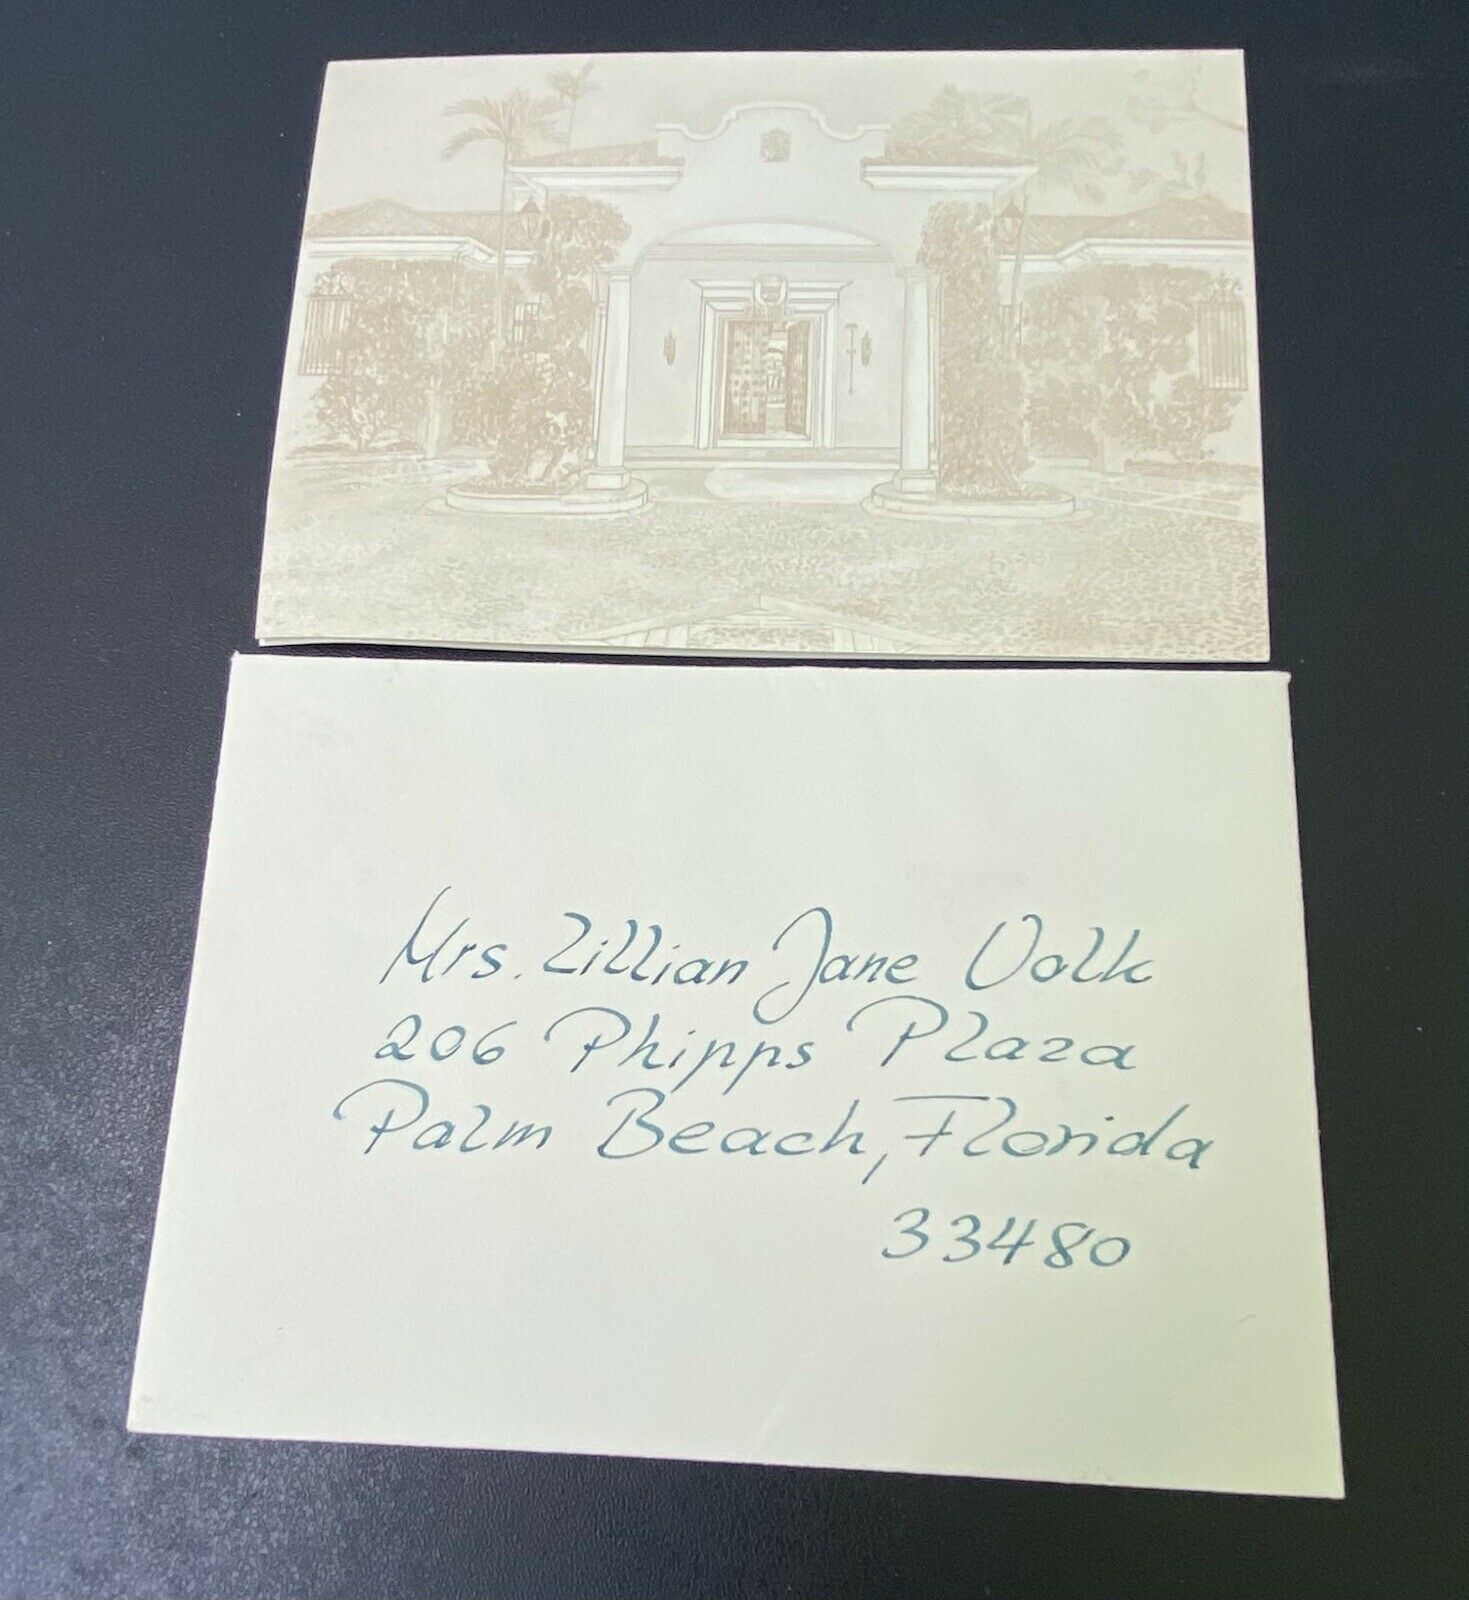 Mrs. Lillian Jane Volk
206 Phipps Plaza
Palm Beach, Florida
33480